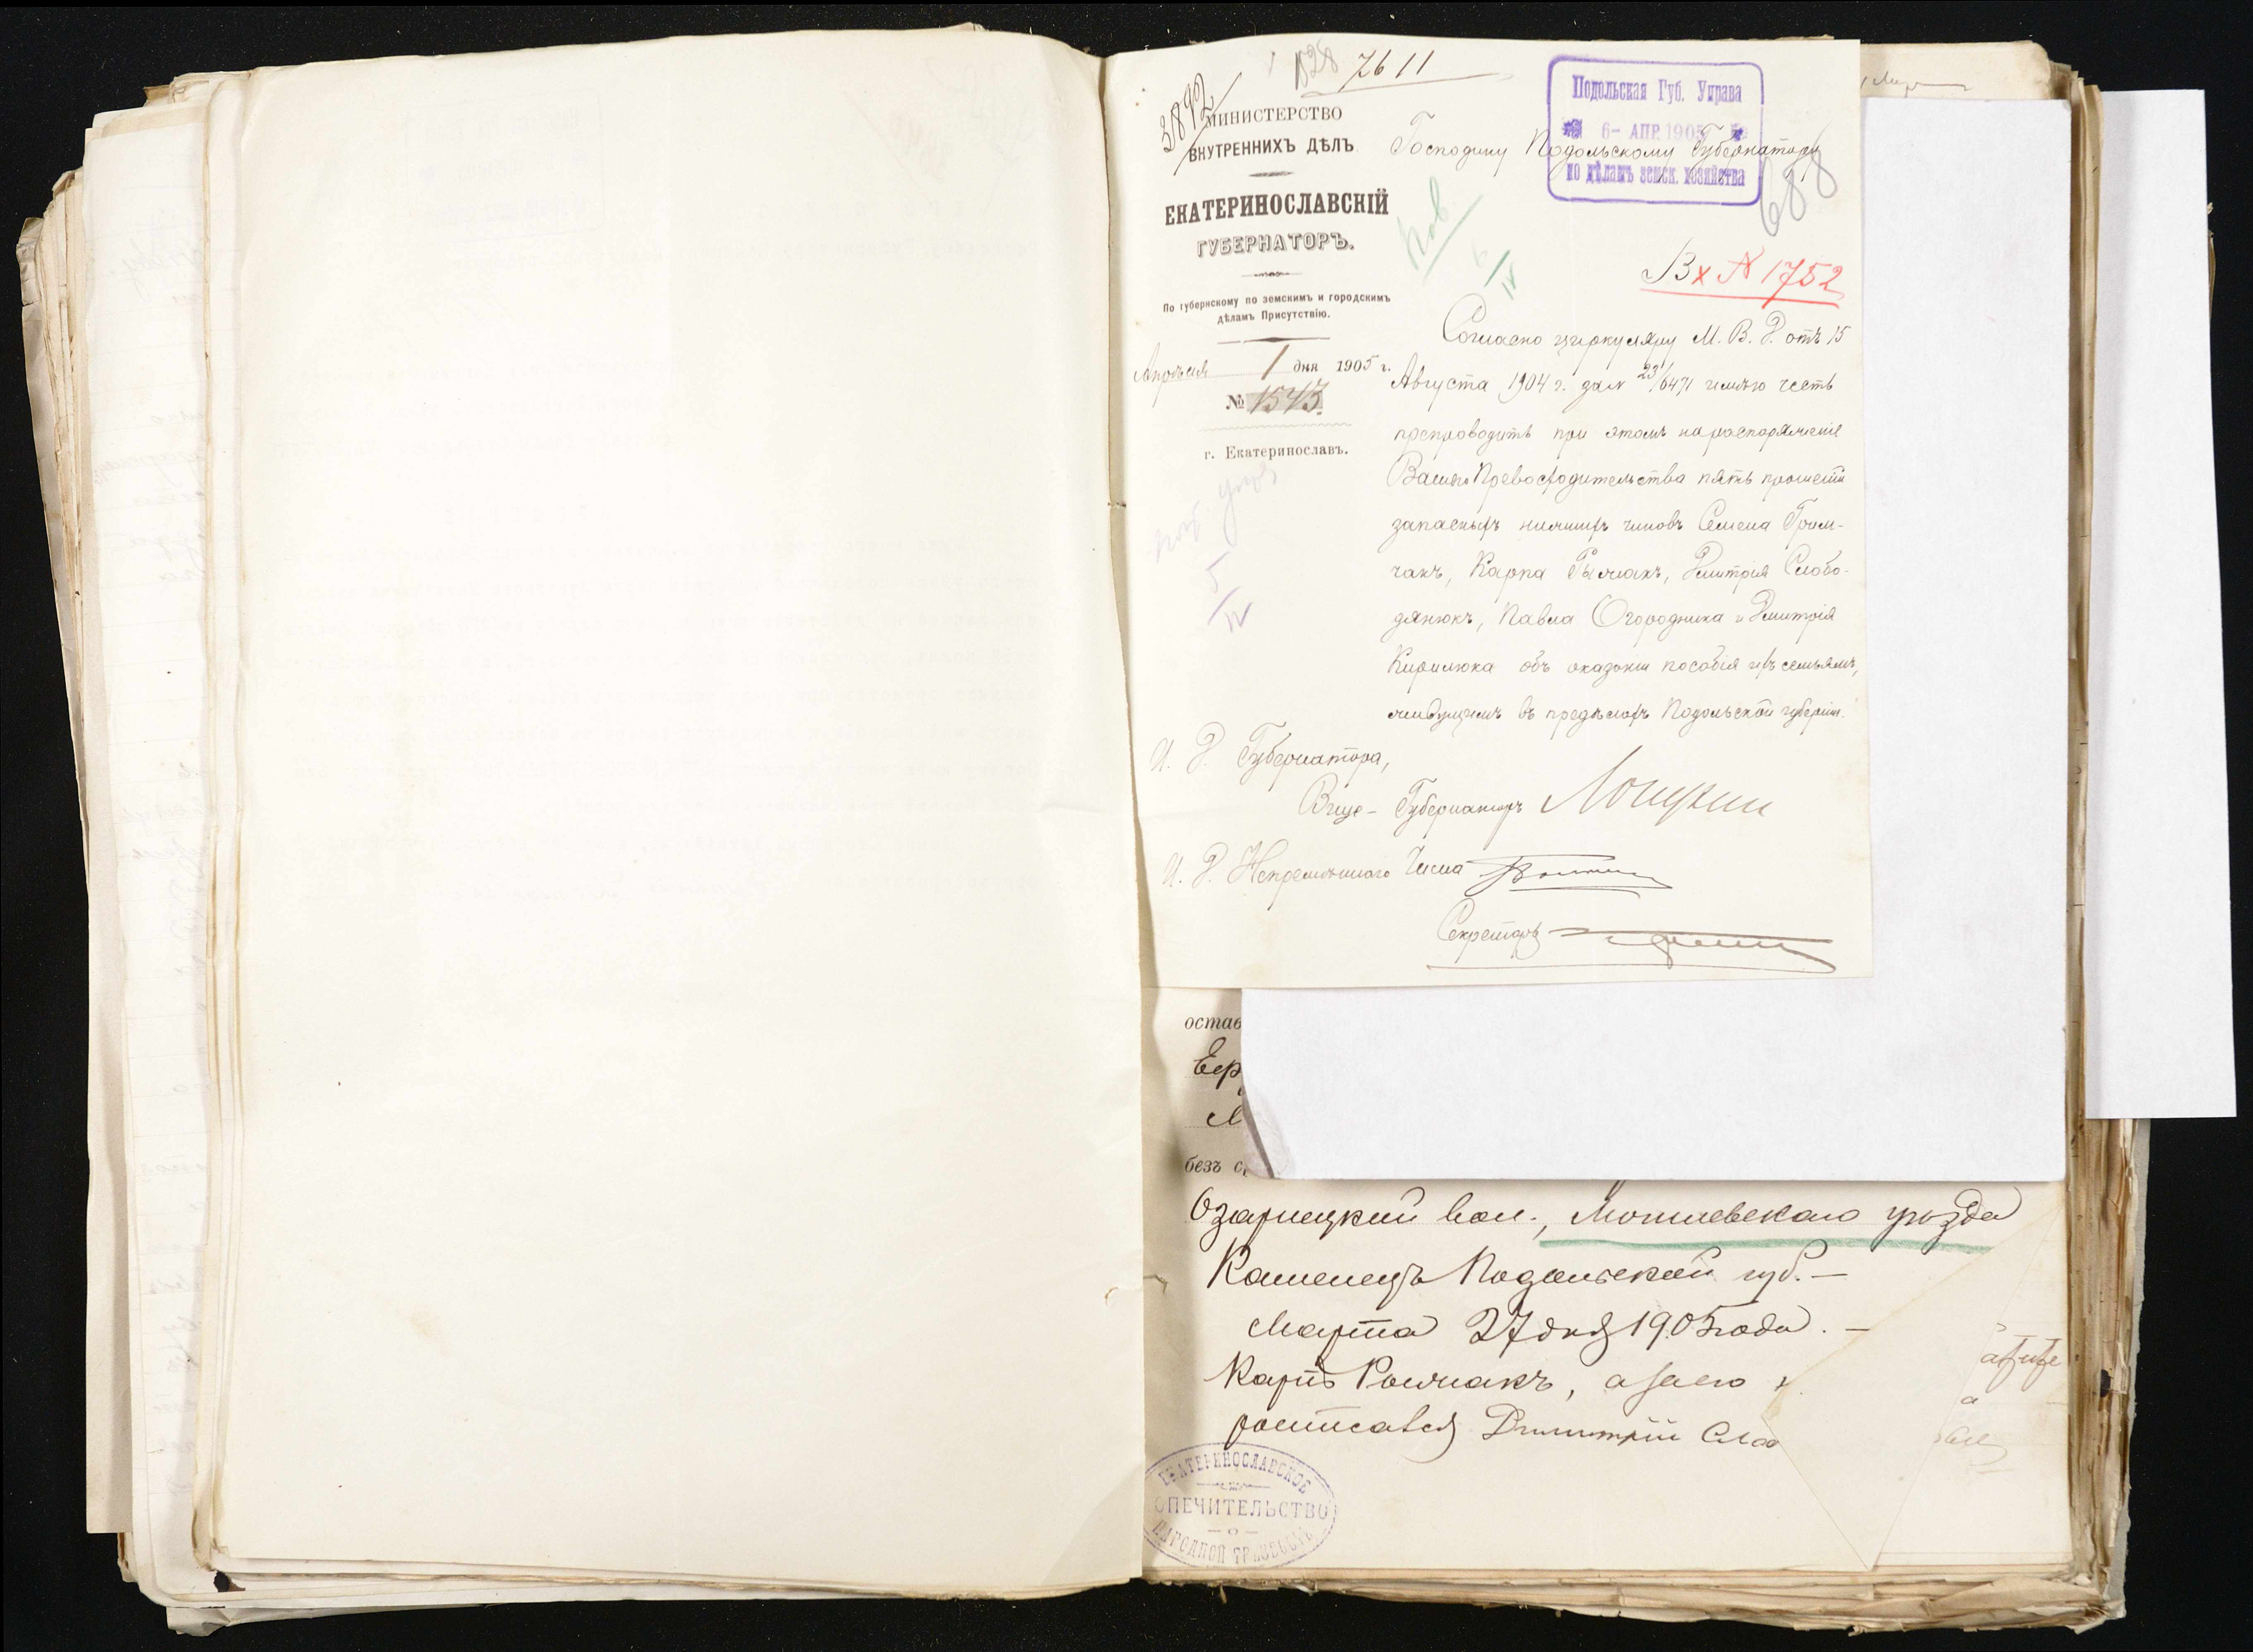 7611
3892
МИНИСТЕРСТВО
ВНУТРЕННИХЪ ДѢЛЪ
ЕКАТЕРИНОСЛАВСКІЙ
ГУБЕРНАТОРЪ.
По губернскому по земскимъ и городскимъ
дѣламъ Присутствію.
Апрѣля 1 дня 1905 г.
№ 1543
г. Екатеринославъ.
Подольская Губ. Управа
6- АПР. 1905
по дѣламъ земск. хозяйства
Господину Подольскому Губернатору
688
Вх № 1752
Согласно циркуляру М. В. Д. отъ 15
Августа 1904 г. за № 23/6471 имѣю честь
препроводить при этомъ на распоряженіе
Вашего Превосходительства пять прошеній
запасныхъ нижнихъ чиновъ Семена Грим-
чакъ, Карпа Рыжакъ, Дмитрія Слобо-
дянюкъ, Павла Огородника и Дмитрія
Кирилюка объ оказаніи пособія ихъ семьямъ,
живущимъ въ предѣлахъ Подольской губерніи.
И. Д. Губернатора,
Вице-Губернаторъ
И. Д. Непремѣннаго Члена
Секретарь
остав
Бер
безъ
Озаринецкой вол., Могилевскаго уѣзда
Каменецъ Подольской губ.-
Марта 27 дня 1905 года. -
Карпъ Рыжакъ, а за его
росписався Дмитрій Сло
ЕКАТЕРИНОСЛАВСКОЕ
ОПЕЧИТЕЛЬСТВО
О
НАРОДНОЙ ТРЕЗВОСТИ